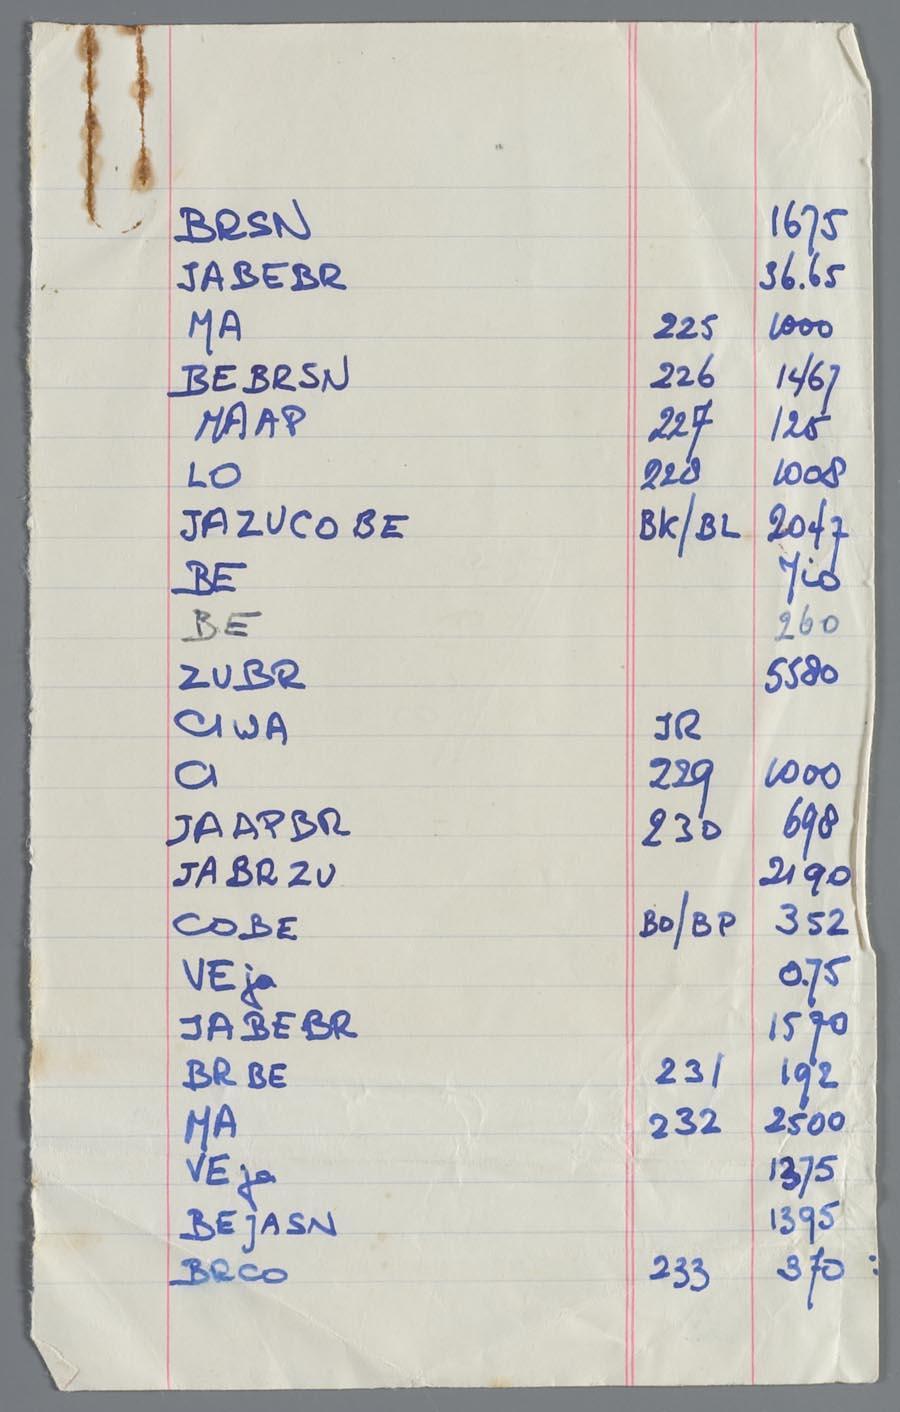 BRSN 1675
JABEBR 36.65
MA 225 1000
BEBRSN 226 1467
MAAP 227 125
LO 228 1008
JAZUCOBE BK/BL 2047
BE 710
BE 260
ZUBR 5580
CIWA JR
CI 229 1000
JAAPBR 230 698
JABRZU 2190
COBE BO/BP 352
VEja 0.75
JABEBR 1570
BRBE 231 192
MA 232 2500
VEja 1375
BEjASN 1395
BRCO 233 370 :